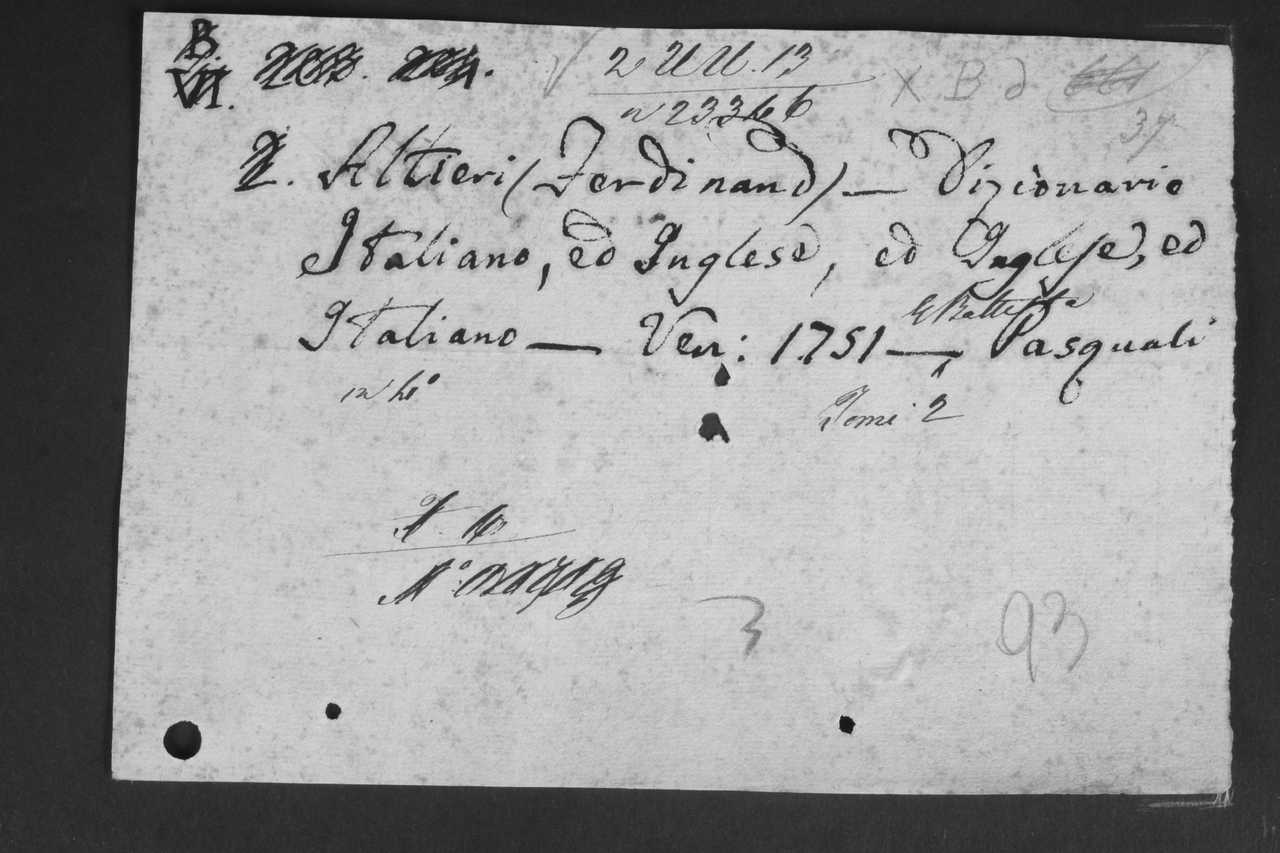 B.
VII.
2 UU. 13
n 23346
X B d
37
2. Altieri (Ferdinand) — Dizionario
Italiano, ed Inglese, ed Inglese, ed
Italiano — Ven: 1751 — Pasquali
in 4°
Tomi 2
N°.
3
93